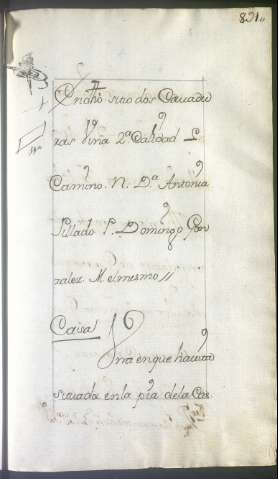 831,,
En dho sitio dos Cavadu
ras Viña 2ª Calidad L.
Camino. N. Dª Antonia
Pillado P. Domingo Gon
zalez M. el mismo //
Casa
Una en que havita
situada en la pza de la Cos